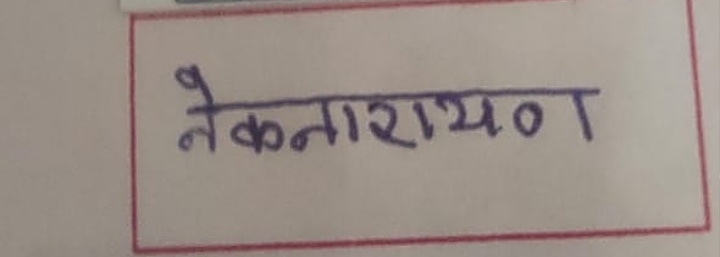 नेकनारायण